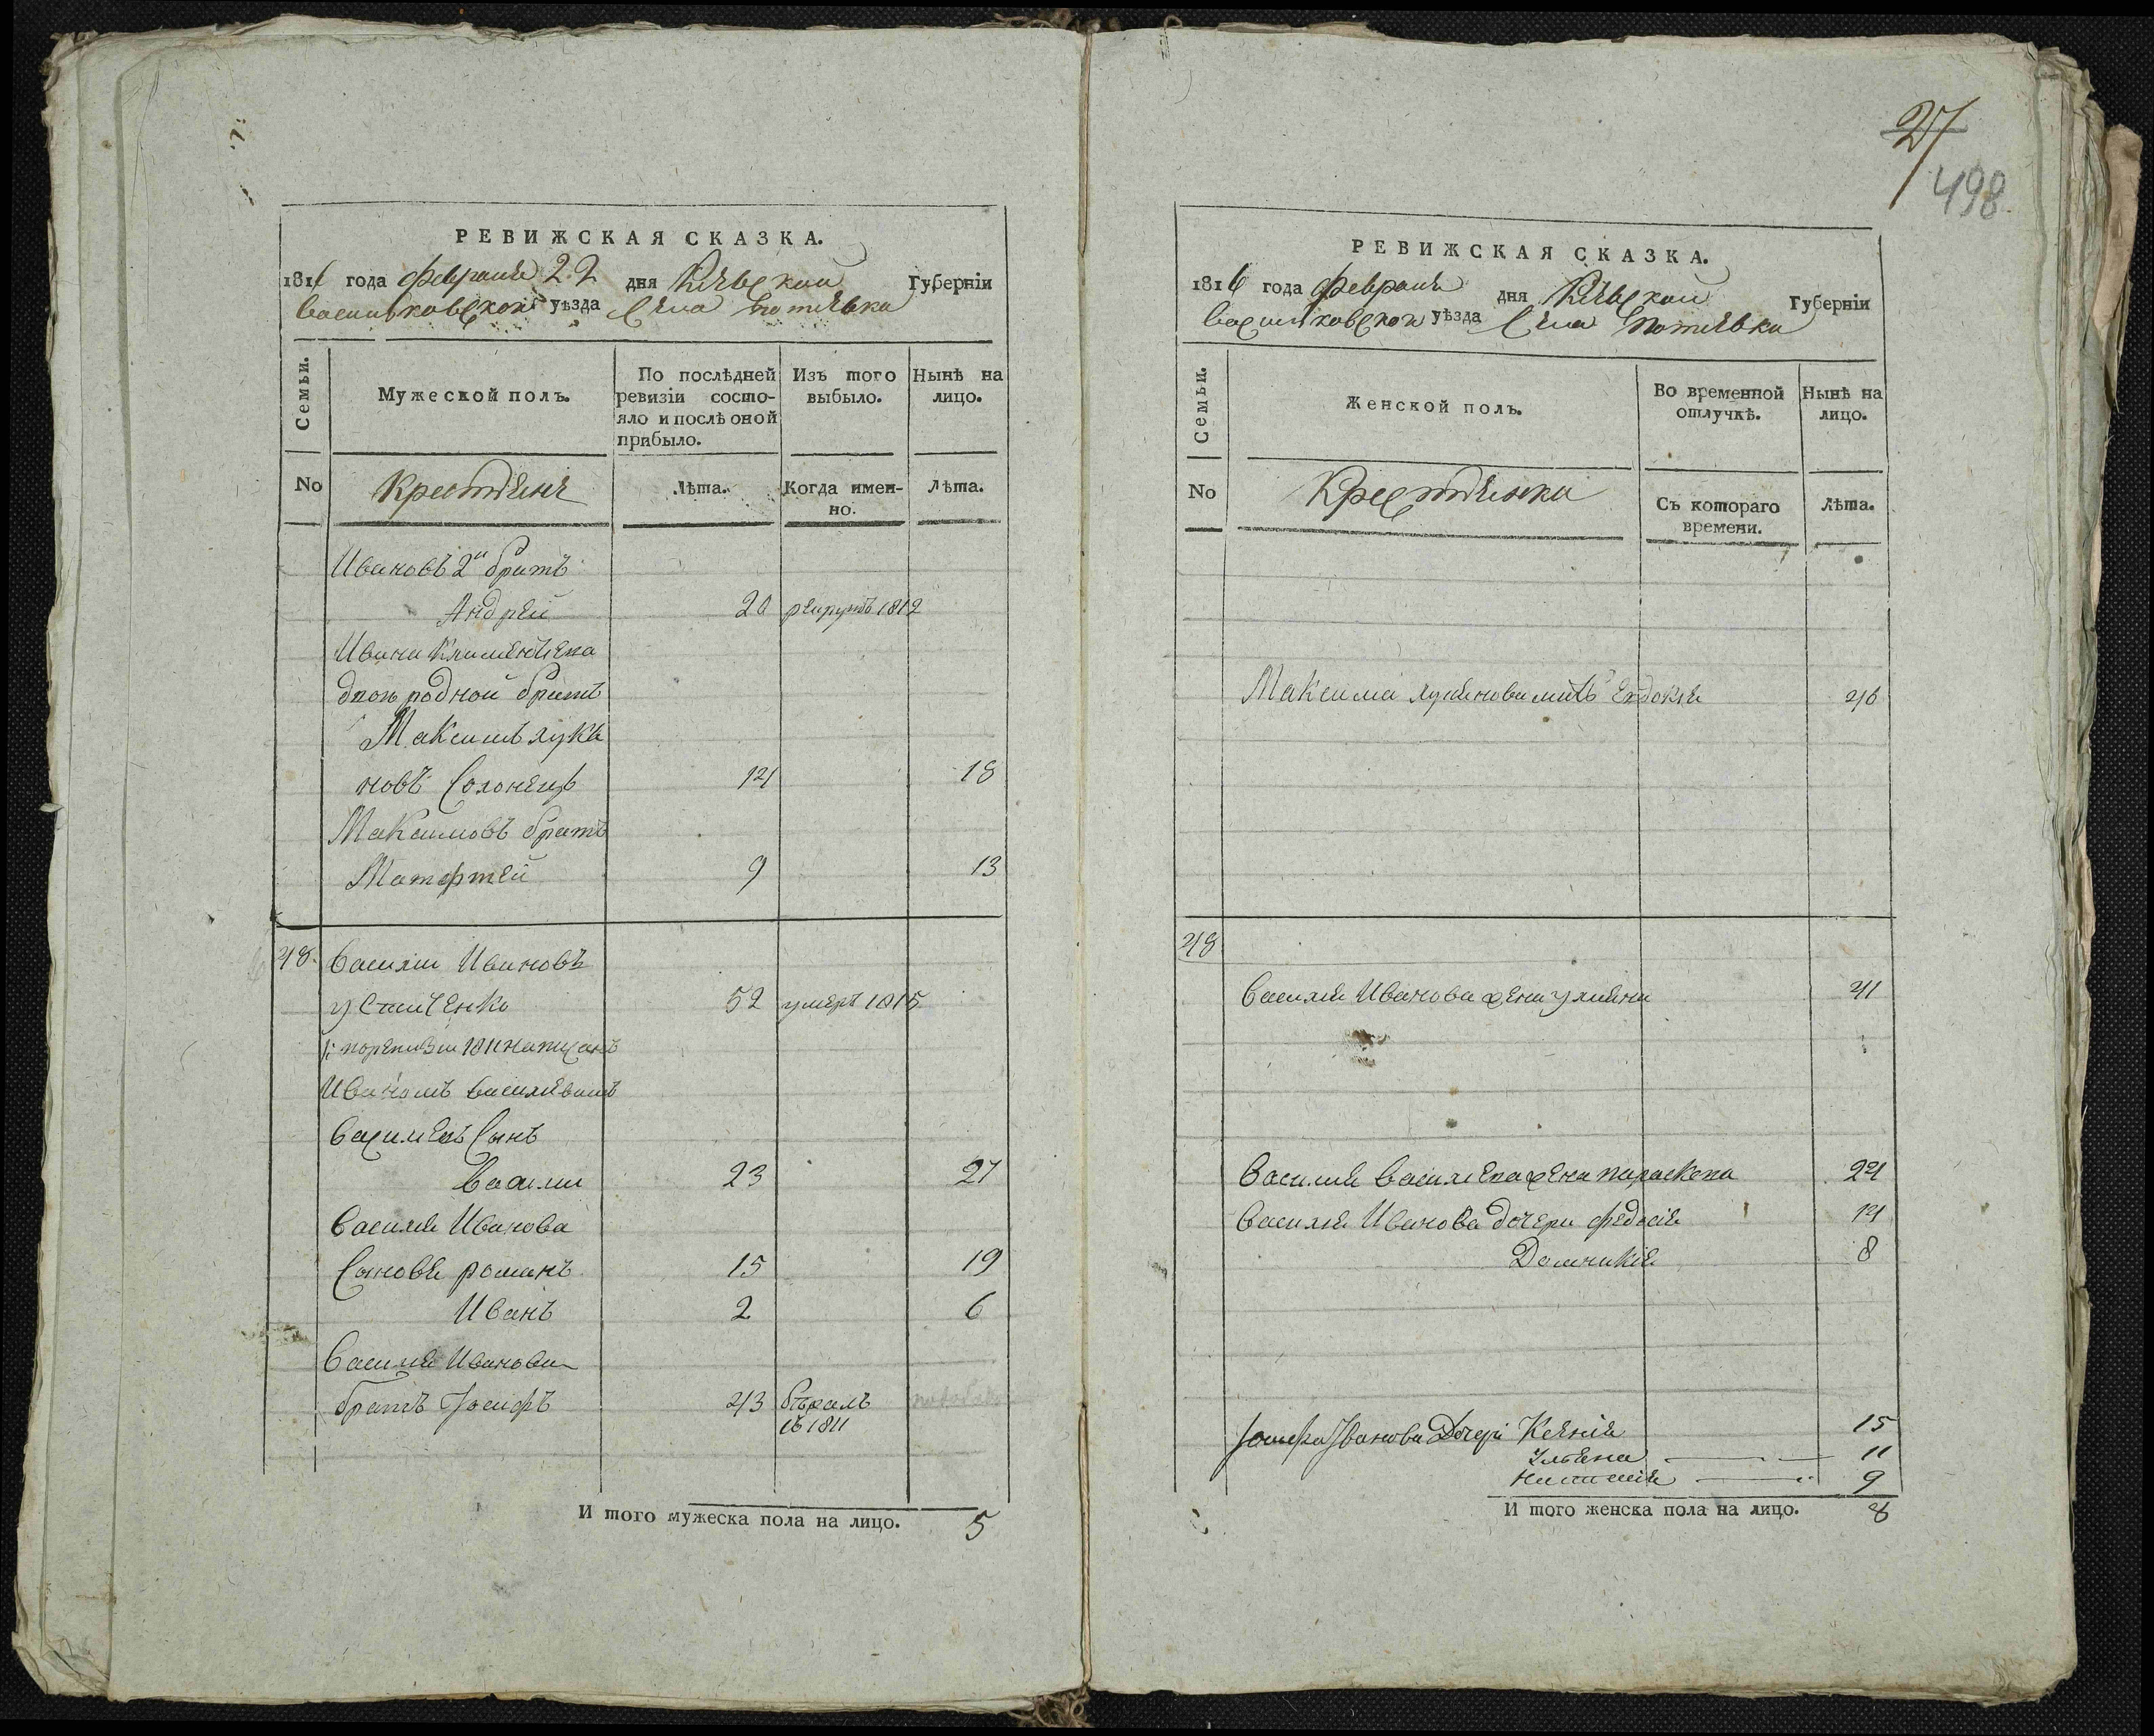 РЕВИЖСКАЯ СКАЗКА.
1816 года Февраля 22 дня Киевской Губерніи
Васильковской уѣзда Села Потиевки
Семьи.
Мужеской полъ.
По послѣдней ревизіи состо-
яло и послѣ оной
прибыло.
Изъ того
выбыло.
Нынѣ на
лицо.
No
Крестяне
Лѣта.
Когда имен-
но.
Лѣта.
Ивановъ 2й братъ
Андрей 20 рекрутъ 1812
Ивана Клименчека
двоюродной братъ
Максимъ Лукя
новъ Солонецъ 14 18
Максимовъ братъ
Матфтей 9 13
48. Василий Ивановъ
Устиченко 52 умеръ 1815
по ревизии 1811 написанъ
Иваномъ Василиевымъ
Василиевъ Сынъ
Василий 23 27
Василия Иванова
Сыновя Романъ 15 19
Иванъ 2 6
Василия Иванова
братъ Іосифъ 43 бѣжалъ
въ 1811
И того мужеска пола на лицо. 5
27
498
РЕВИЖСКАЯ СКАЗКА.
1816 года Февраля дня Киевской Губерніи
Васильковской уѣзда Села Потиевки
Семьи.
Женской полъ.
Во временной
отлучкѣ.
Нынѣ на
лицо.
No
Крестянки
Съ котораго
времени.
Лѣта.
Максима Лукянова мать Евдокия 46
48
Василия Иванова жена Улияна 41
Василия Василиева жена Параскева 24
Василия Иванова дочери Федосия 14
Домникия 8
Іосифа Іванова Дочері Ксения 15
Ульяна 11
Настасия 9
И того женска пола на лицо. 8